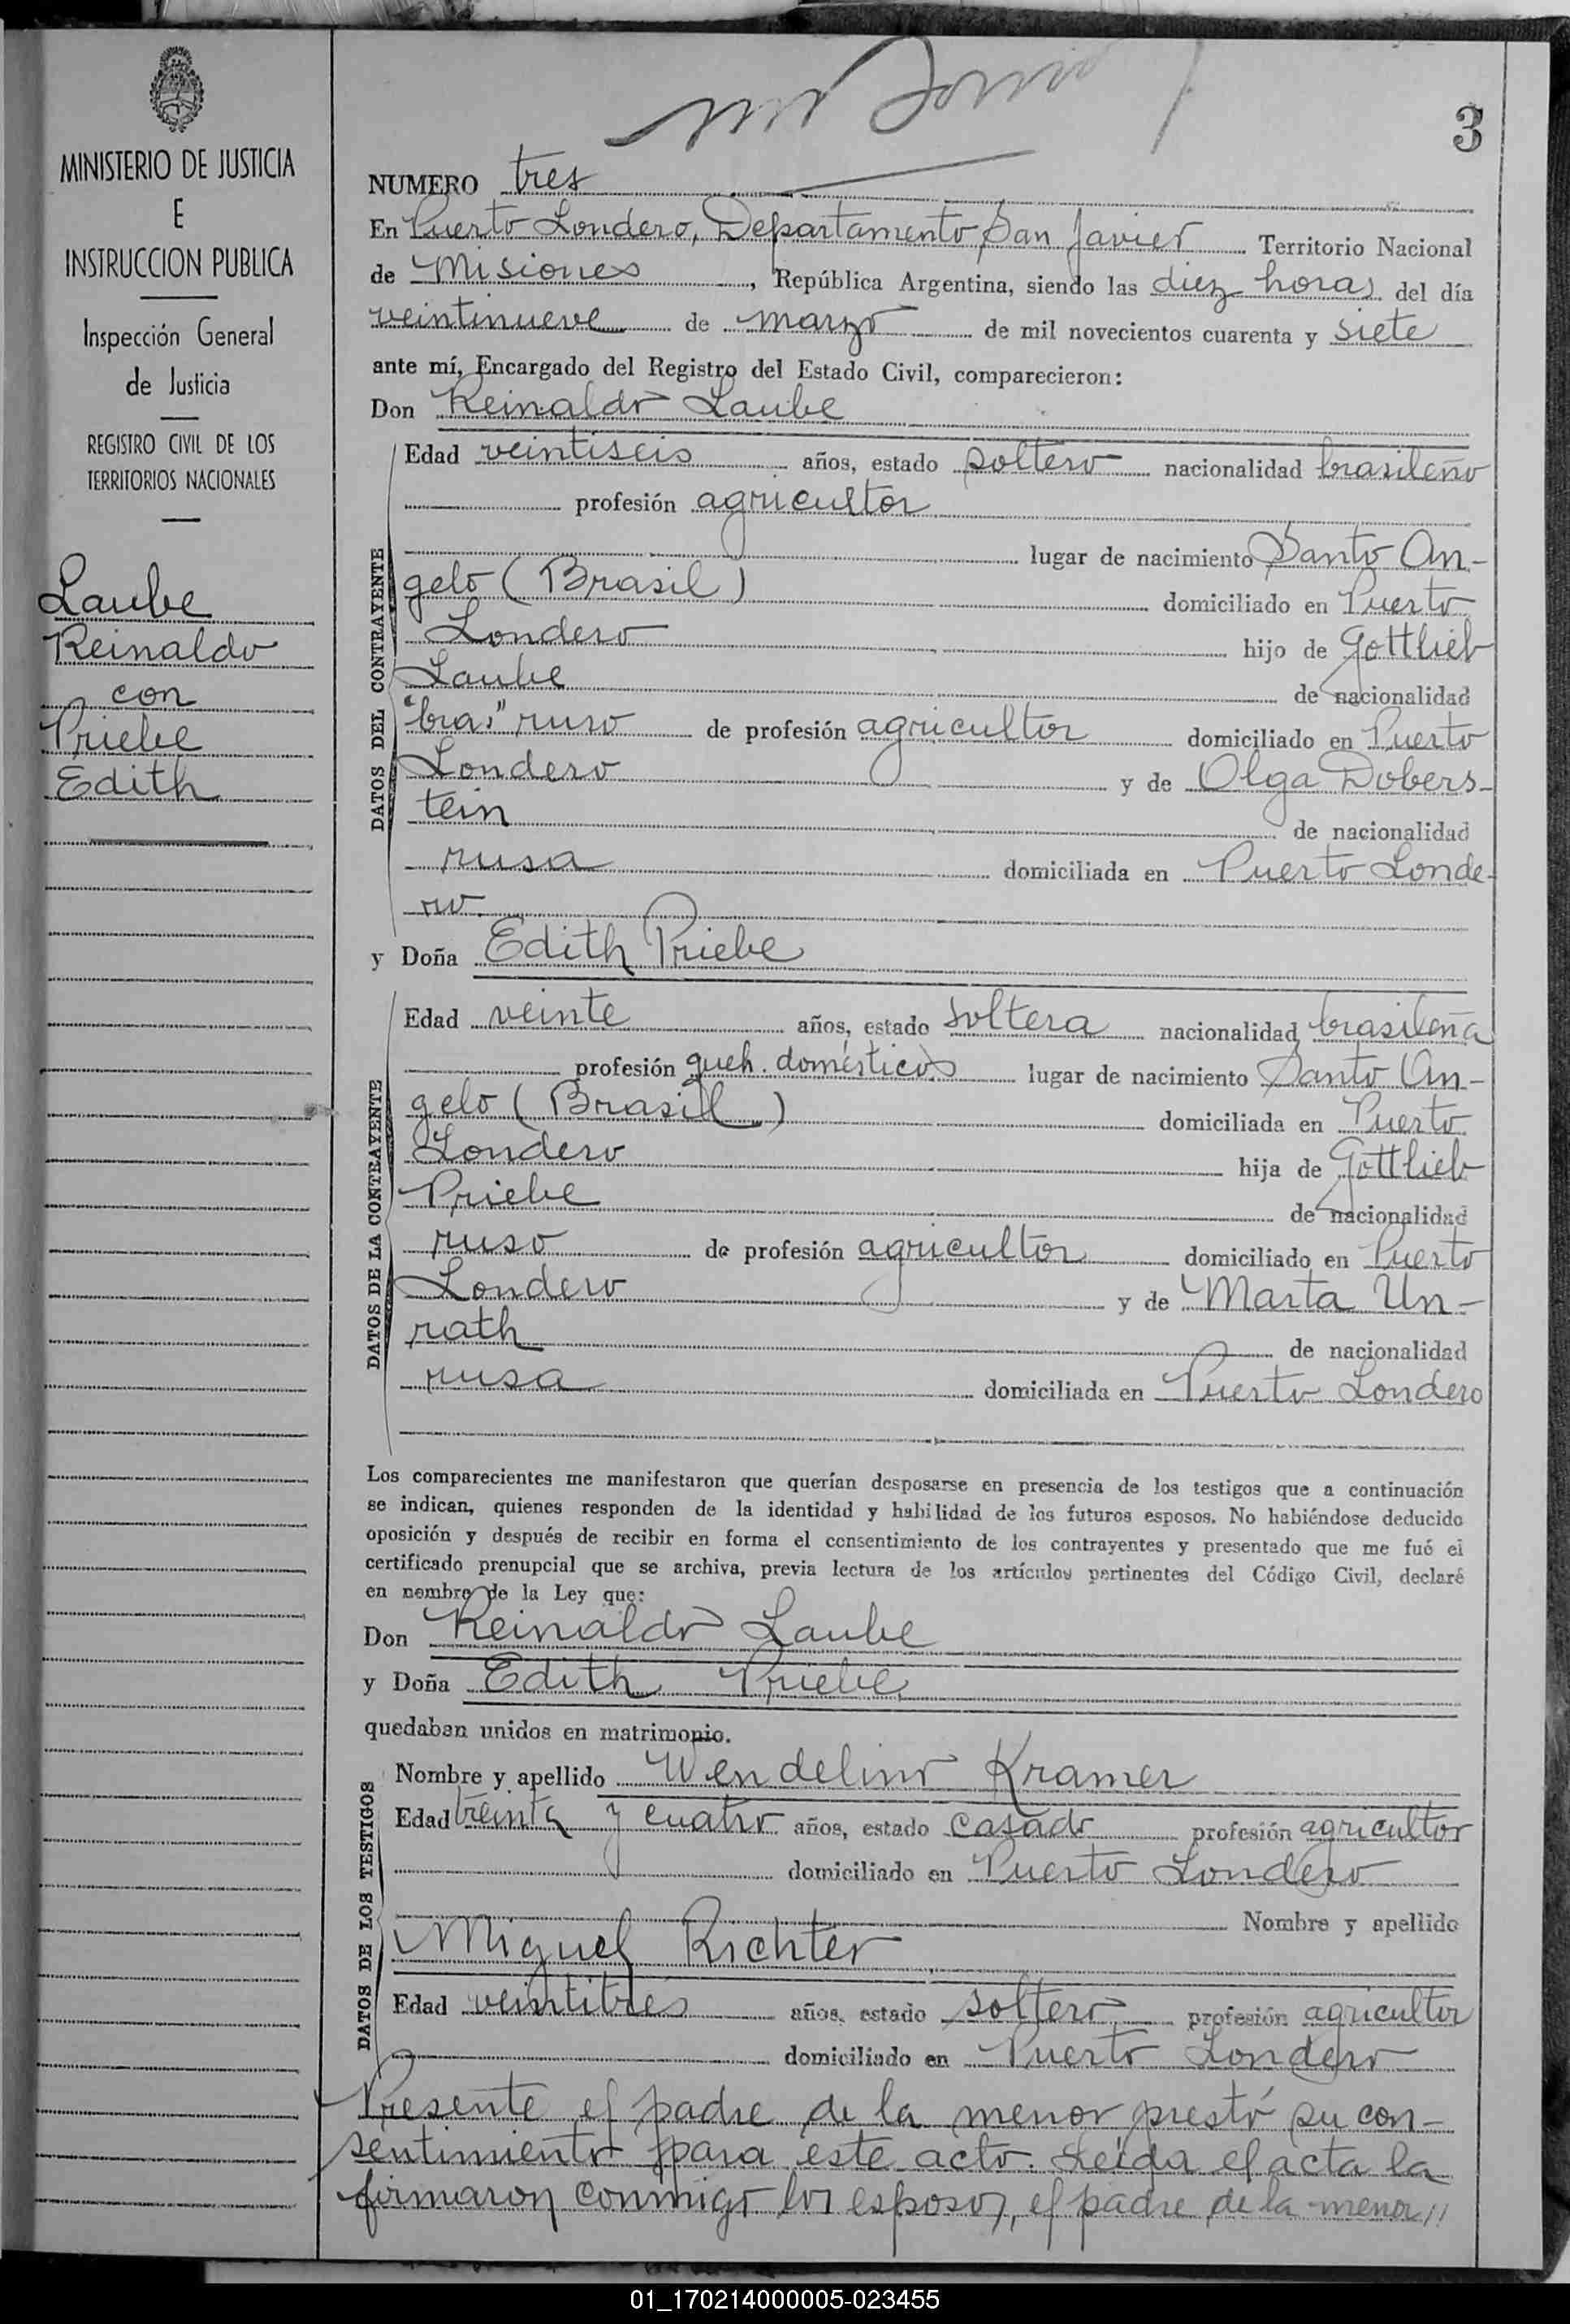 3
MINISTERIO DE JUSTICIA
E
INSTRUCCION PUBLICA
Inspección General
de Justicia
REGISTRO CIVIL DE LOS
TERRITORIOS NACIONALES
Laube
Reinaldo
con
Priebe
Edith
NUMERO tres
En Puerto Londero, Departamento San Javier Territorio Nacional
de Misiones, República Argentina, siendo las diez horas del día
veintinueve de marzo de mil novecientos cuarenta y siete
ante mí, Encargado del Registro del Estado Civil, comparecieron:
Don Reinaldo Laube
DATOS DEL CONTRAYENTE
Edad veintiseis años, estado soltero nacionalidad brasileño
profesión agricultor
lugar de nacimiento Santo An-
gelo (Brasil) domiciliado en Puerto
Londero hijo de Gottlieb
Laube de nacionalidad
"bras" ruso de profesión agricultor domiciliado en Puerto
Londero y de Olga Dobers-
tein de nacionalidad
rusa domiciliada en Puerto Londe-
ro.
y Doña Edith Priebe
DATOS DE LA CONTRAYENTE
Edad veinte años, estado soltera nacionalidad brasileña
profesión queh. domésticos lugar de nacimiento Santo An-
gelo (Brasil) domiciliada en Puerto
Londero hija de Gottlieb
Priebe de nacionalidad
ruso de profesión agricultor domiciliado en Puerto
Londero y de Marta Un-
rath de nacionalidad
rusa domiciliada en Puerto Londero
Los comparecientes me manifestaron que querían desposarse en presencia de los testigos que a continuación
se indican, quienes responden de la identidad y habilidad de los futuros esposos. No habiéndose deducido
oposición y después de recibir en forma el consentimiento de los contrayentes y presentado que me fué el
certificado prenupcial que se archiva, previa lectura de los artículos pertinentes del Código Civil, declaré
en nombre de la Ley que:
Don Reinaldo Laube
y Doña Edith Priebe
quedaban unidos en matrimonio.
DATOS DE LOS TESTIGOS
Nombre y apellido Wendelino Kramer
Edad treinta y cuatro años, estado casado profesión agricultor
domiciliado en Puerto Londero
Nombre y apellido
Miguel Richter
Edad veintitres años, estado soltero profesión agricultor
domiciliado en Puerto Londero
Presente el padre de la menor prestó su con-
sentimiento para este acto. Leida el acta la
firmaron conmigo los esposos, el padre de la menor//
01_170214000005-023455